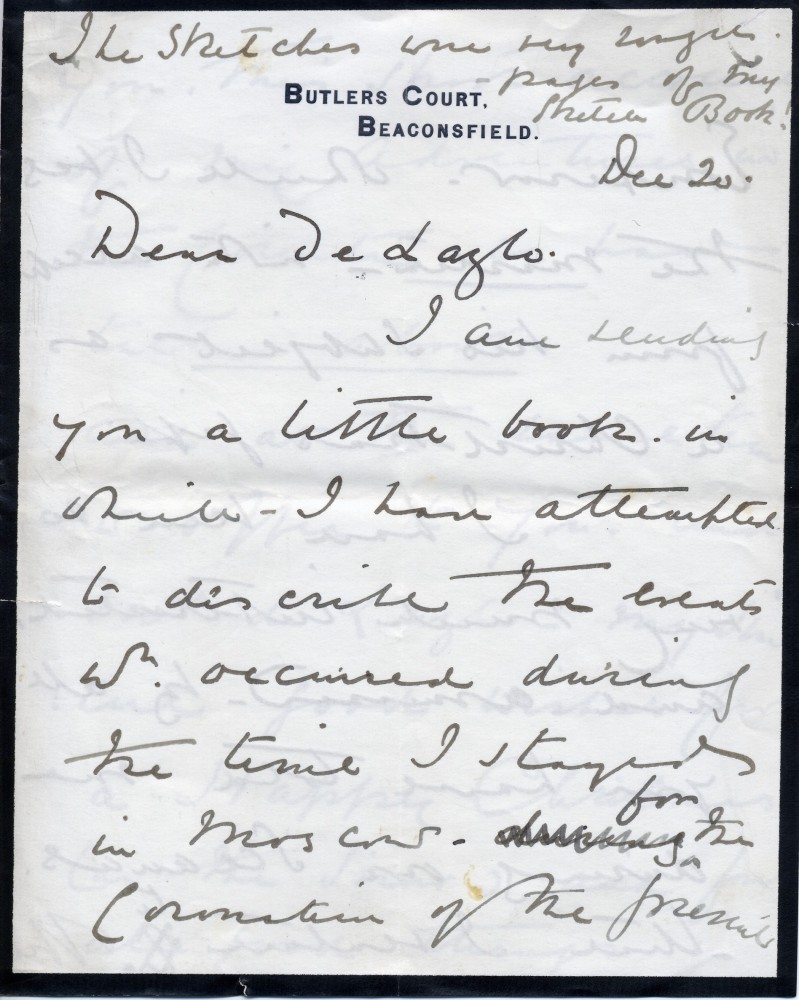 The Sketches were very rough.
- pages of my
Sketch Book!
BUTLERS COURT,
BEACONSFIELD.
Dec 20.
Dear De Lazlo.
I am sending
you a little book. in
which - I have attempted
to discribe the events
wh. occurred during
the time I stayed
in Moscow. - during for the
Coronation of the present